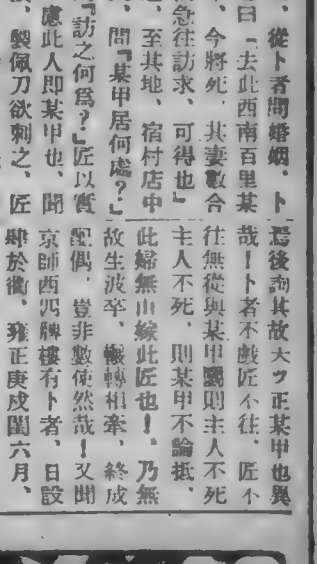 、從卜者問婚姻、卜
曰「去此西南百里某
、今將死、其妻數合
急往訪求、可得也」
、至其地、宿村店中
、問「某甲居何處？」
「訪之何爲？」匠以實
慮此人卽某甲也、聞
、掣佩刀欲刺之、匠
焉後詢其故夫ッ正某甲也異
哉！卜者不戲匠不往、匠不
往無從與某甲鬭則主人不死
主人不死、則某甲不論抵、
此婦無由嫁此匠也！、乃無
故生波卒、輾轉相牽、終成
配偶、豈非數使然哉！又聞
京師西四牌樓有卜者、日設
肆於衢、雍正庚戌閏六月、